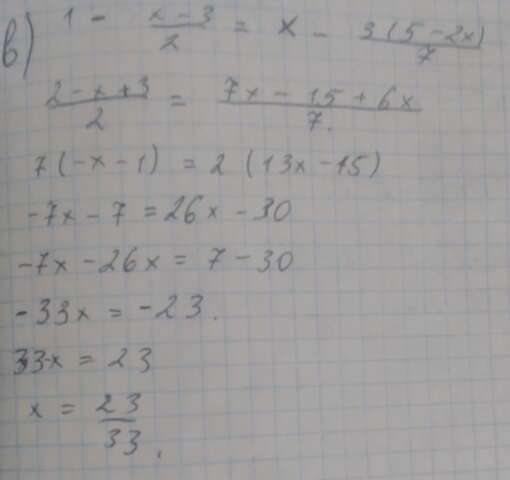 в) 1 - (x - 3)/2 = x - 3(5 - 2x)/7
(2 - x + 3)/2 = (7x - 15 + 6x)/7.
7(-x - 1) = 2 (13x - 15)
-7x - 7 = 26x - 30
-7x - 26x = 7 - 30
-33x = -23.
33x = 23
x = 23/33.